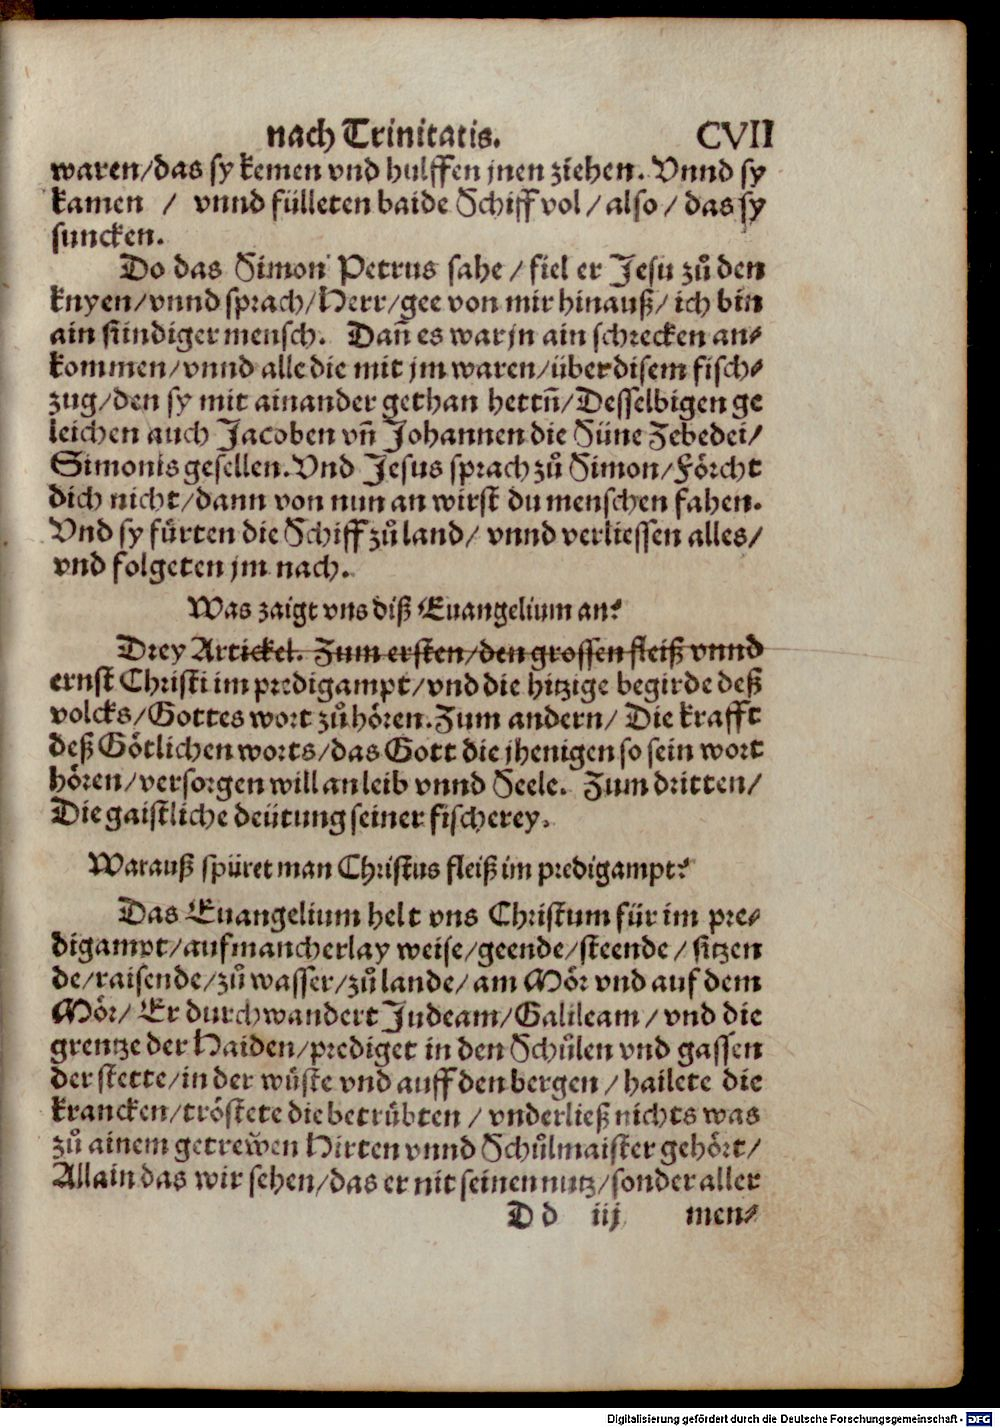 nach Trinitatis. CVII
waren/das sy kemen vnd hulffen jnen ziehen. Vnnd sy
kamen / vnnd fülleten baide Schiff vol / also / das sy
suncken.
Do das Simon Petrus sahe / fiel er Jesu zů den
knyen/vnnd sprach/Herr/gee von mir hinauß/ ich bin
ain sündiger mensch. Dañ es war jn ain schrecken an⸗
kommen/vnnd alle die mit jm waren/über disem fisch⸗
zug/den sy mit ainander gethan hettñ/Desselbigen ge
leichen auch Jacoben vñ Johannen die Süne Zebedei/
Simonis gesellen. Vnd Jesus sprach zů Simon/Förcht
dich nicht/dann von nun an wirst du menschen fahen.
Vnd sy fürten die Schiff zů land/ vnnd verliessen alles/
vnd folgeten jm nach.
Was zaigt vns diß Euangelium an?
Drey Artickel. Zum ersten/den grossen fleiß vnnd
ernst Christi im predigampt/vnd die hitzige begirde deß
volcks/Gottes wort zů hören. Zum andern/ Die krafft
deß Götlichen worts/das Gott die jhenigen so sein wort
hören/versorgen will an leib vnnd Seele. Zum dritten/
Die gaistliche deütung seiner fischerey.
Warauß spüret man Christus fleiß im predigampt?
Das Euangelium helt vns Christum für im pre⸗
digampt/auf mancherlay weise/geende/steende / sitzen
de/raisende/zů wasser/zů lande/ am Mör vnd auf dem
Mör/ Er durchwandert Judeam/Galileam / vnd die
grentze der Haiden/prediget in den Schůlen vnd gassen
der stette/in der wüste vnd auff den bergen / hailete die
krancken/tröstete die betrübten / vnderließ nichts was
zů ainem getrewen Hirten vnnd Schůlmaister gehört/
Allain das wir sehen/das er nit seinen nutz/sonder aller
D d iij men⸗
Digitalisierung gefördert durch die Deutsche Forschungsgemeinschaft - DFG